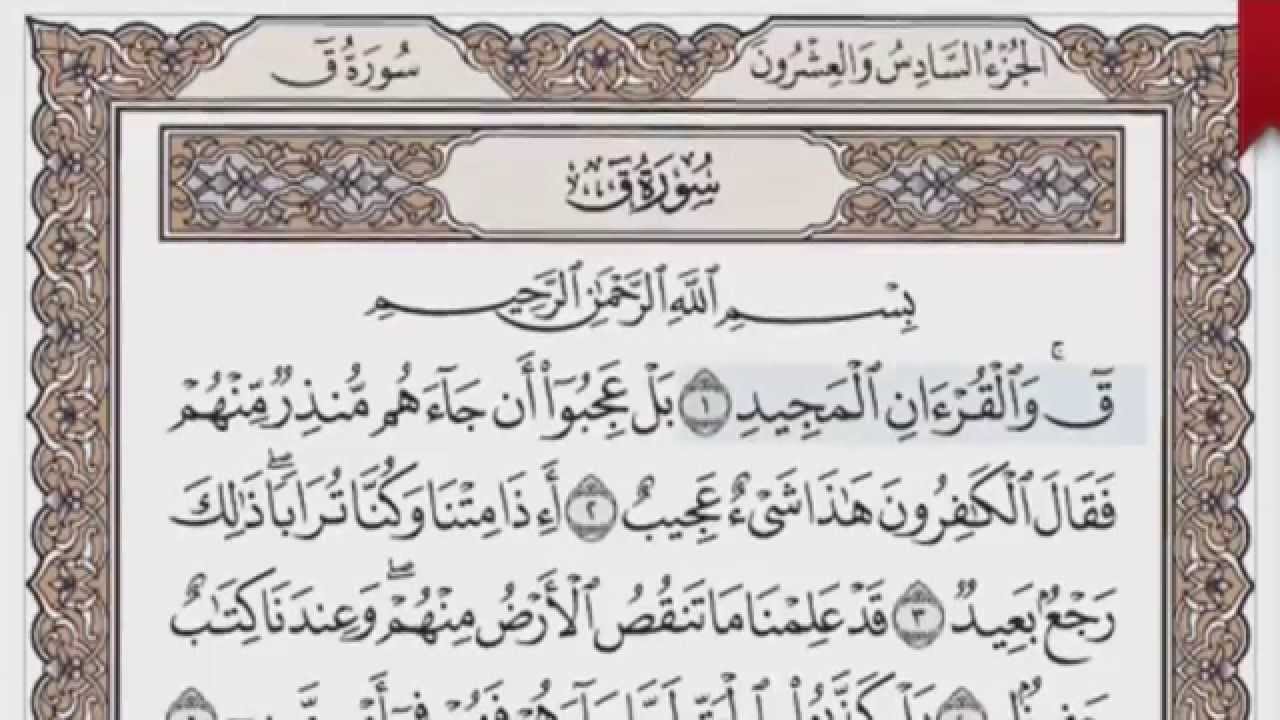 الجُزْءُ السَّادِسُ وَالعِشْرُونَ
سُورَةُ قٓ
سُورَةُ قٓ
بِسْمِ ٱللَّهِ ٱلرَّحْمَٰنِ ٱلرَّحِيمِ
قٓۚ وَٱلْقُرْءَانِ ٱلْمَجِيدِ ١ بَلْ عَجِبُوٓا۟ أَن جَآءَهُم مُّنذِرٌ مِّنْهُمْ
فَقَالَ ٱلْكَٰفِرُونَ هَٰذَا شَىْءٌ عَجِيبٌ ٢ أَءِذَا مِتْنَا وَكُنَّا تُرَابًاۖ ذَٰلِكَ
رَجْعٌۢ بَعِيدٌ ٣ قَدْ عَلِمْنَا مَا تَنقُصُ ٱلْأَرْضُ مِنْهُمْۖ وَعِندَنَا كِتَٰبٌ